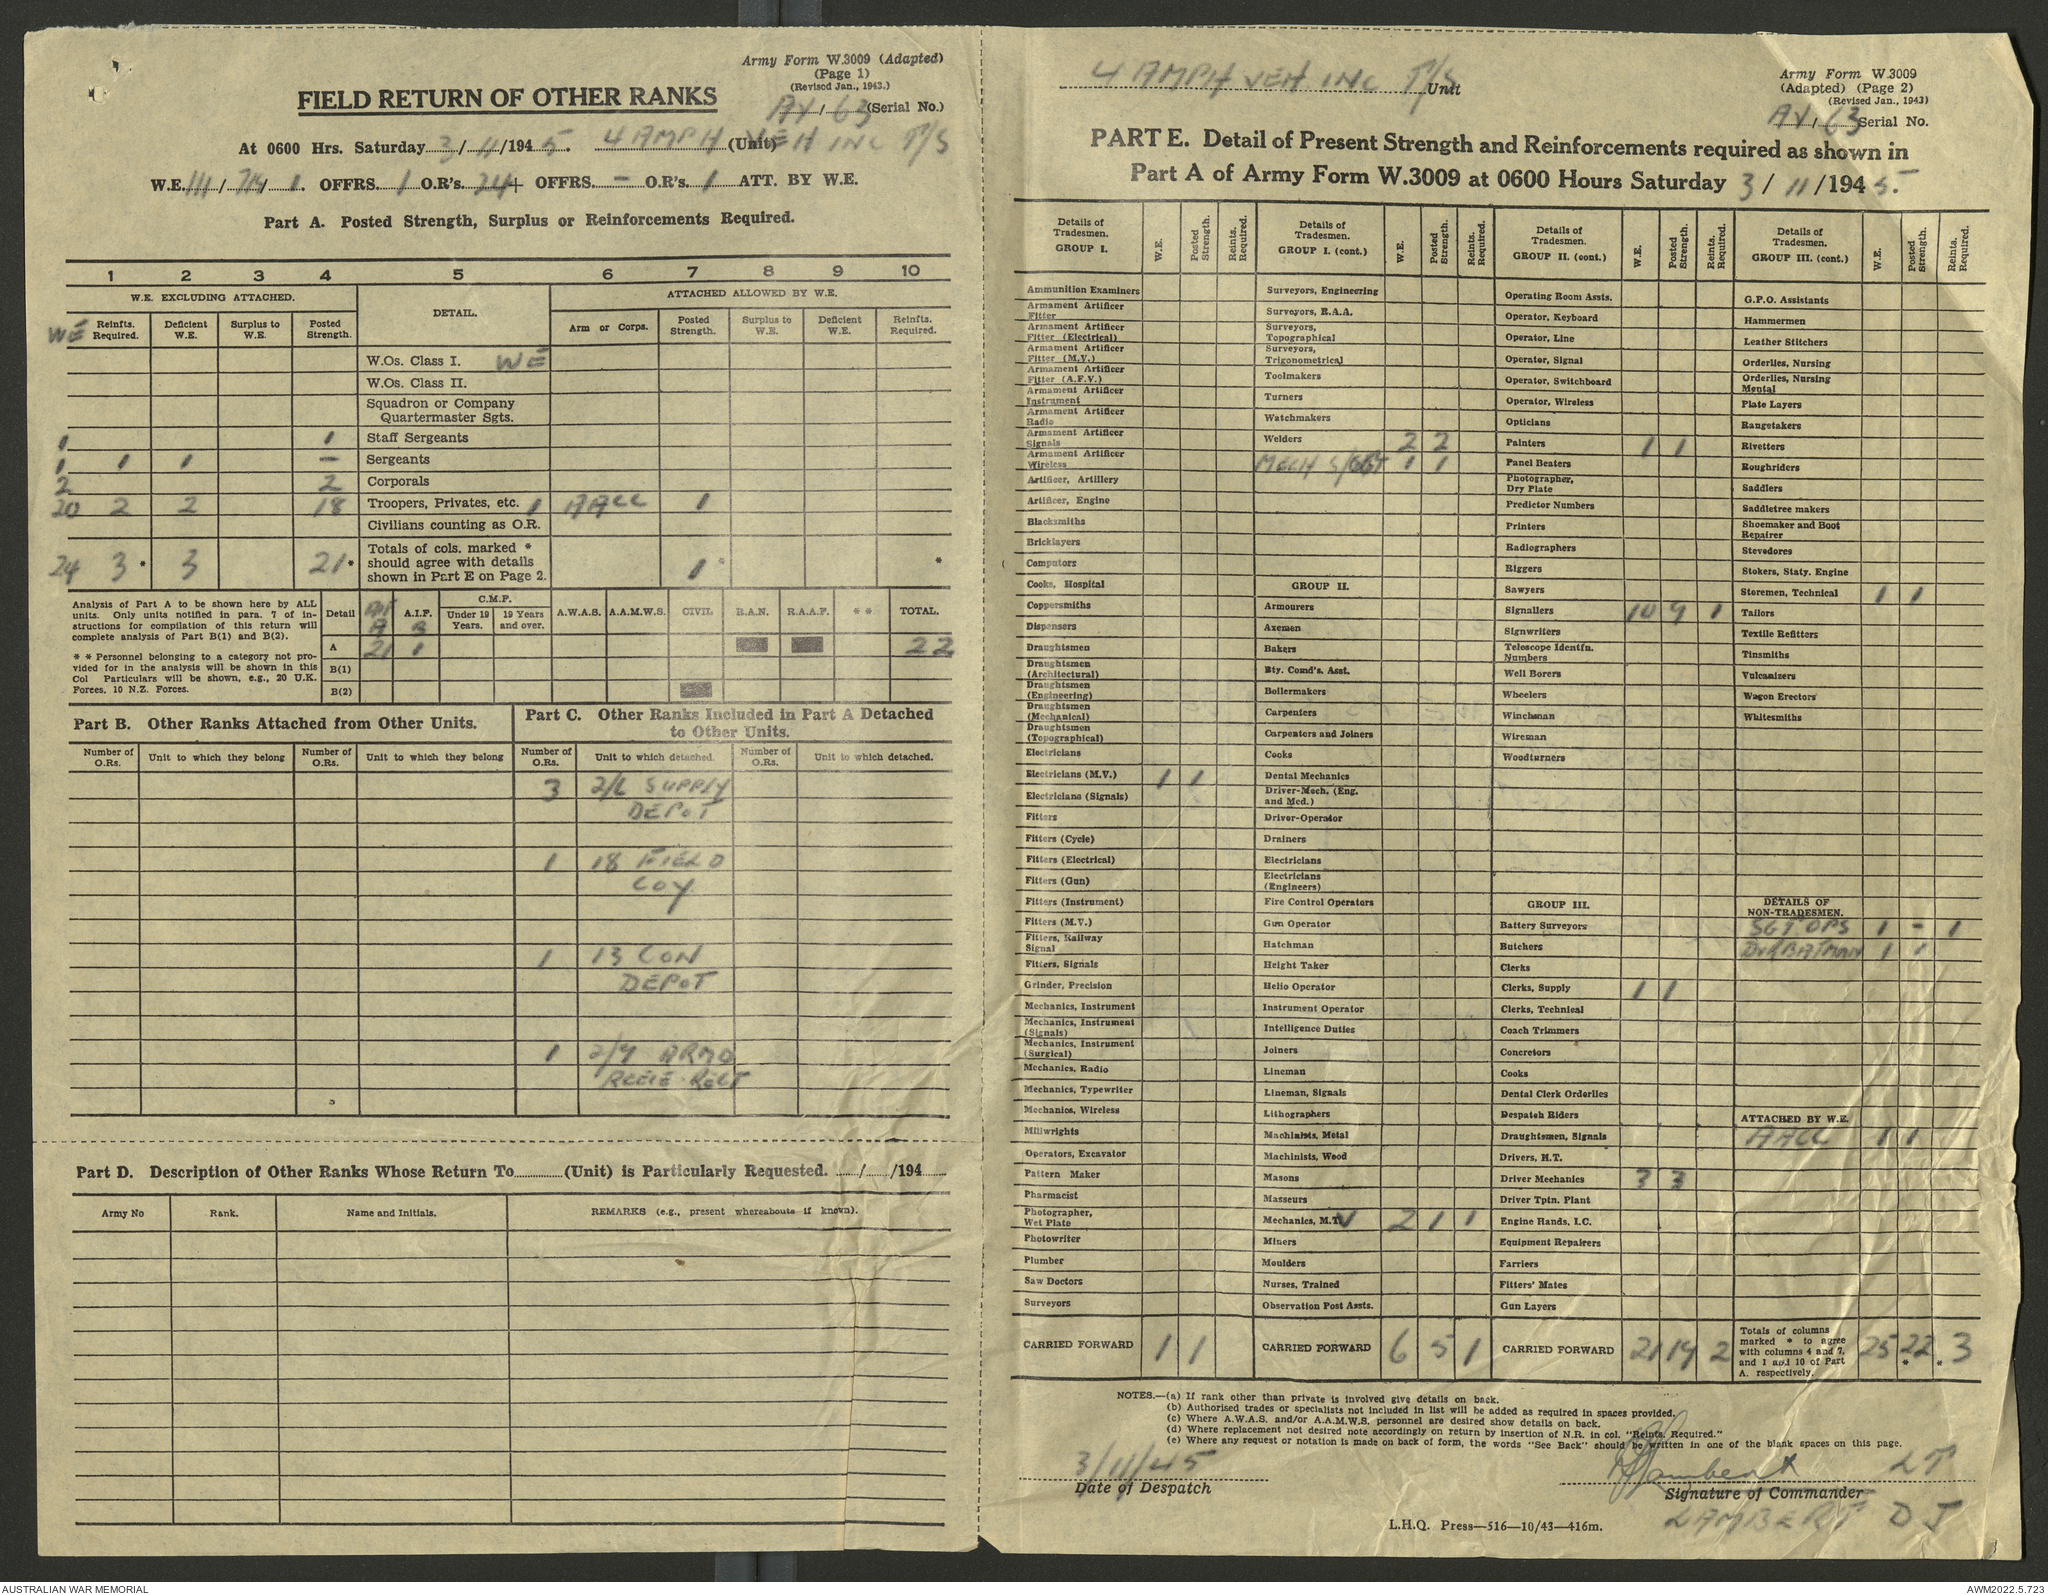 Army Form W.3009 (Adapted)
(Page 1)
(Revised Jan., 1943.)
FIELD RETURN OF OTHER RANKS
AY / 63 (Serial No.)
At 0600 Hrs. Saturday 3/11/1945. 4 AMPH (Unit) VEH INC P/S
W.E. III/714/1. OFFRS. 1 O.R's. 24 + OFFRS. – O.R's. 1 ATT. BY W.E.
Part A. Posted Strength, Surplus or Reinforcements Required.
1 2 3 4 5 6 7 8 9 10
W.E. EXCLUDING ATTACHED. DETAIL. ATTACHED ALLOWED BY W.E.
WE Reinfts. Required. Deficient W.E. Surplus to W.E. Posted Strength. Arm or Corps. Posted Strength. Surplus to W.E. Deficient W.E. Reinfts. Required.
W.Os. Class I. WE
W.Os. Class II.
Squadron or Company
Quartermaster Sgts.
1 1 Staff Sergeants
1 1 1 – Sergeants
2 2 Corporals
20 2 2 18 Troopers, Privates, etc. 1 AACC 1
Civilians counting as O.R.
24 3 * 3 21 * Totals of cols. marked * should agree with details shown in Part E on Page 2. 1 * *
Analysis of Part A to be shown here by ALL units. Only units notified in para. 7 of instructions for compilation of this return will complete analysis of Part B(1) and B(2).
* * Personnel belonging to a category not provided for in the analysis will be shown in this Col Particulars will be shown, e.g., 20 U.K. Forces, 10 N.Z. Forces.
Detail A.I.F. C.M.F. Under 19 Years. 19 Years and over. A.W.A.S. A.A.M.W.S. CIVIL R.A.N. R.A.A.F. * * TOTAL.
A B
A 21 1 22
B(1)
B(2)
Part B. Other Ranks Attached from Other Units.
Number of O.Rs. Unit to which they belong Number of O.Rs. Unit to which they belong
Part C. Other Ranks Included in Part A Detached to Other Units.
Number of O.Rs. Unit to which detached. Number of O.Rs. Unit to which detached.
3 2/L SUPPLY
DEPOT
1 18 FIELD
COY
1 13 CON
DEPOT
1 2/4 ARMD
RGT
Part D. Description of Other Ranks Whose Return To (Unit) is Particularly Requested. / /194
Army No Rank. Name and Initials. REMARKS (e.g., present whereabouts if known).
4 AMPH VEH INC P/S Unit
Army Form W.3009
(Adapted) (Page 2)
(Revised Jan., 1943)
AY / 63 Serial No.
PART E. Detail of Present Strength and Reinforcements required as shown in
Part A of Army Form W.3009 at 0600 Hours Saturday 3/11/1945.
Details of Tradesmen. GROUP I. W.E. Posted Strength. Reints. Required.
Ammunition Examiners
Armament Artificer Fitter
Armament Artificer Fitter (Electrical)
Armament Artificer Fitter (M.V.)
Armament Artificer Fitter (A.F.V.)
Armament Artificer Instrument
Armament Artificer Radio
Armament Artificer Signals
Armament Artificer Wireless
Artificer, Artillery
Artificer, Engine
Blacksmiths
Bricklayers
Computors
Cooks, Hospital
Coppersmiths
Dispensers
Draughtsmen
Draughtsmen (Architectural)
Draughtsmen (Engineering)
Draughtsmen (Mechanical)
Draughtsmen (Topographical)
Electricians
Electricians (M.V.) 1 1
Electricians (Signals)
Fitters
Fitters (Cycle)
Fitters (Electrical)
Fitters (Gun)
Fitters (Instrument)
Fitters (M.V.)
Fitters, Railway Signal
Fitters, Signals
Grinder, Precision
Mechanics, Instrument
Mechanics, Instrument (Signals)
Mechanics, Instrument (Surgical)
Mechanics, Radio
Mechanics, Typewriter
Mechanics, Wireless
Millwrights
Operators, Excavator
Pattern Maker
Pharmacist
Photographer, Wet Plate
Photowriter
Plumber
Saw Doctors
Surveyors
CARRIED FORWARD 1 1
Details of Tradesmen. GROUP I. (cont.) W.E. Posted Strength. Reints. Required.
Surveyors, Engineering
Surveyors, R.A.A.
Surveyors, Topographical
Surveyors, Trigonometrical
Toolmakers
Turners
Watchmakers
Welders 2 2
MECH S/SGT 1 1
GROUP II.
Armourers
Axemen
Bakers
Bty. Comd's. Asst.
Boilermakers
Carpenters
Carpenters and Joiners
Cooks
Dental Mechanics
Driver-Mech. (Eng. and Med.)
Driver-Operator
Drainers
Electricians
Electricians (Engineers)
Fire Control Operators
Gun Operator
Hatchman
Height Taker
Helio Operator
Instrument Operator
Intelligence Duties
Joiners
Lineman
Lineman, Signals
Lithographers
Machinists, Metal
Machinists, Wood
Masons
Masseurs
Mechanics, M.T. V 2 1 1
Miners
Moulders
Nurses, Trained
Observation Post Assts.
CARRIED FORWARD 6 5 1
Details of Tradesmen. GROUP II. (cont.) W.E. Posted Strength. Reints. Required.
Operating Room Assts.
Operator, Keyboard
Operator, Line
Operator, Signal
Operator, Switchboard
Operator, Wireless
Opticians
Painters 1 1
Panel Beaters
Photographer, Dry Plate
Predictor Numbers
Printers
Radiographers
Riggers
Sawyers
Signallers 10 9 1
Signwriters
Telescope Identfn. Numbers
Well Borers
Wheelers
Winchman
Wireman
Woodturners
GROUP III.
Battery Surveyors
Butchers
Clerks
Clerks, Supply 1 1
Clerks, Technical
Coach Trimmers
Concretors
Cooks
Dental Clerk Orderlies
Despatch Riders
Draughtsmen, Signals
Drivers, H.T.
Driver Mechanics 3 3
Driver Tptn. Plant
Engine Hands, I.C.
Equipment Repairers
Farriers
Fitters' Mates
Gun Layers
CARRIED FORWARD 21 19 2
Details of Tradesmen. GROUP III. (cont.) W.E. Posted Strength. Reints. Required.
G.P.O. Assistants
Hammermen
Leather Stitchers
Orderlies, Nursing
Orderlies, Nursing Mental
Plate Layers
Rangetakers
Rivetters
Roughriders
Saddlers
Saddletree makers
Shoemaker and Boot Repairer
Stevedores
Stokers, Staty. Engine
Storemen, Technical 1 1
Tailors
Textile Refitters
Tinsmiths
Vulcanizers
Wagon Erectors
Whitesmiths
DETAILS OF NON-TRADESMEN.
SGT OPS 1 – 1
DVR BATMAN 1 1
ATTACHED BY W.E.
AACC 1 1
Totals of columns marked * to agree with columns 4 and 7, and 1 and 10 of Part A. respectively. 25 22 * * 3
NOTES.—(a) If rank other than private is involved give details on back.
(b) Authorised trades or specialists not included in list will be added as required in spaces provided.
(c) Where A.W.A.S. and/or A.A.M.W.S. personnel are desired show details on back.
(d) Where replacement not desired note accordingly on return by insertion of N.R. in col. "Reints. Required."
(e) Where any request or notation is made on back of form, the words "See Back" should be written in one of the blank spaces on this page.
3/11/45
Date of Despatch
DJLambert LT
Signature of Commander
LAMBERT D J
L.H.Q. Press—516—10/43—416m.
AUSTRALIAN WAR MEMORIAL
AWM2022.5.723